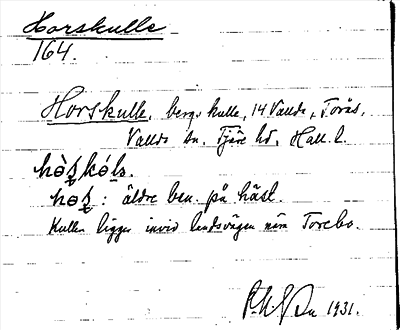 Horskulle
164.
Horskulle, bergskulle, 14 Vallda, Torås,
Vallda sn. Fjäre hd. Hall. l.
: äldre ben. på häst.
Kullen ligger invid landsvägen nära Torebo.
1931.